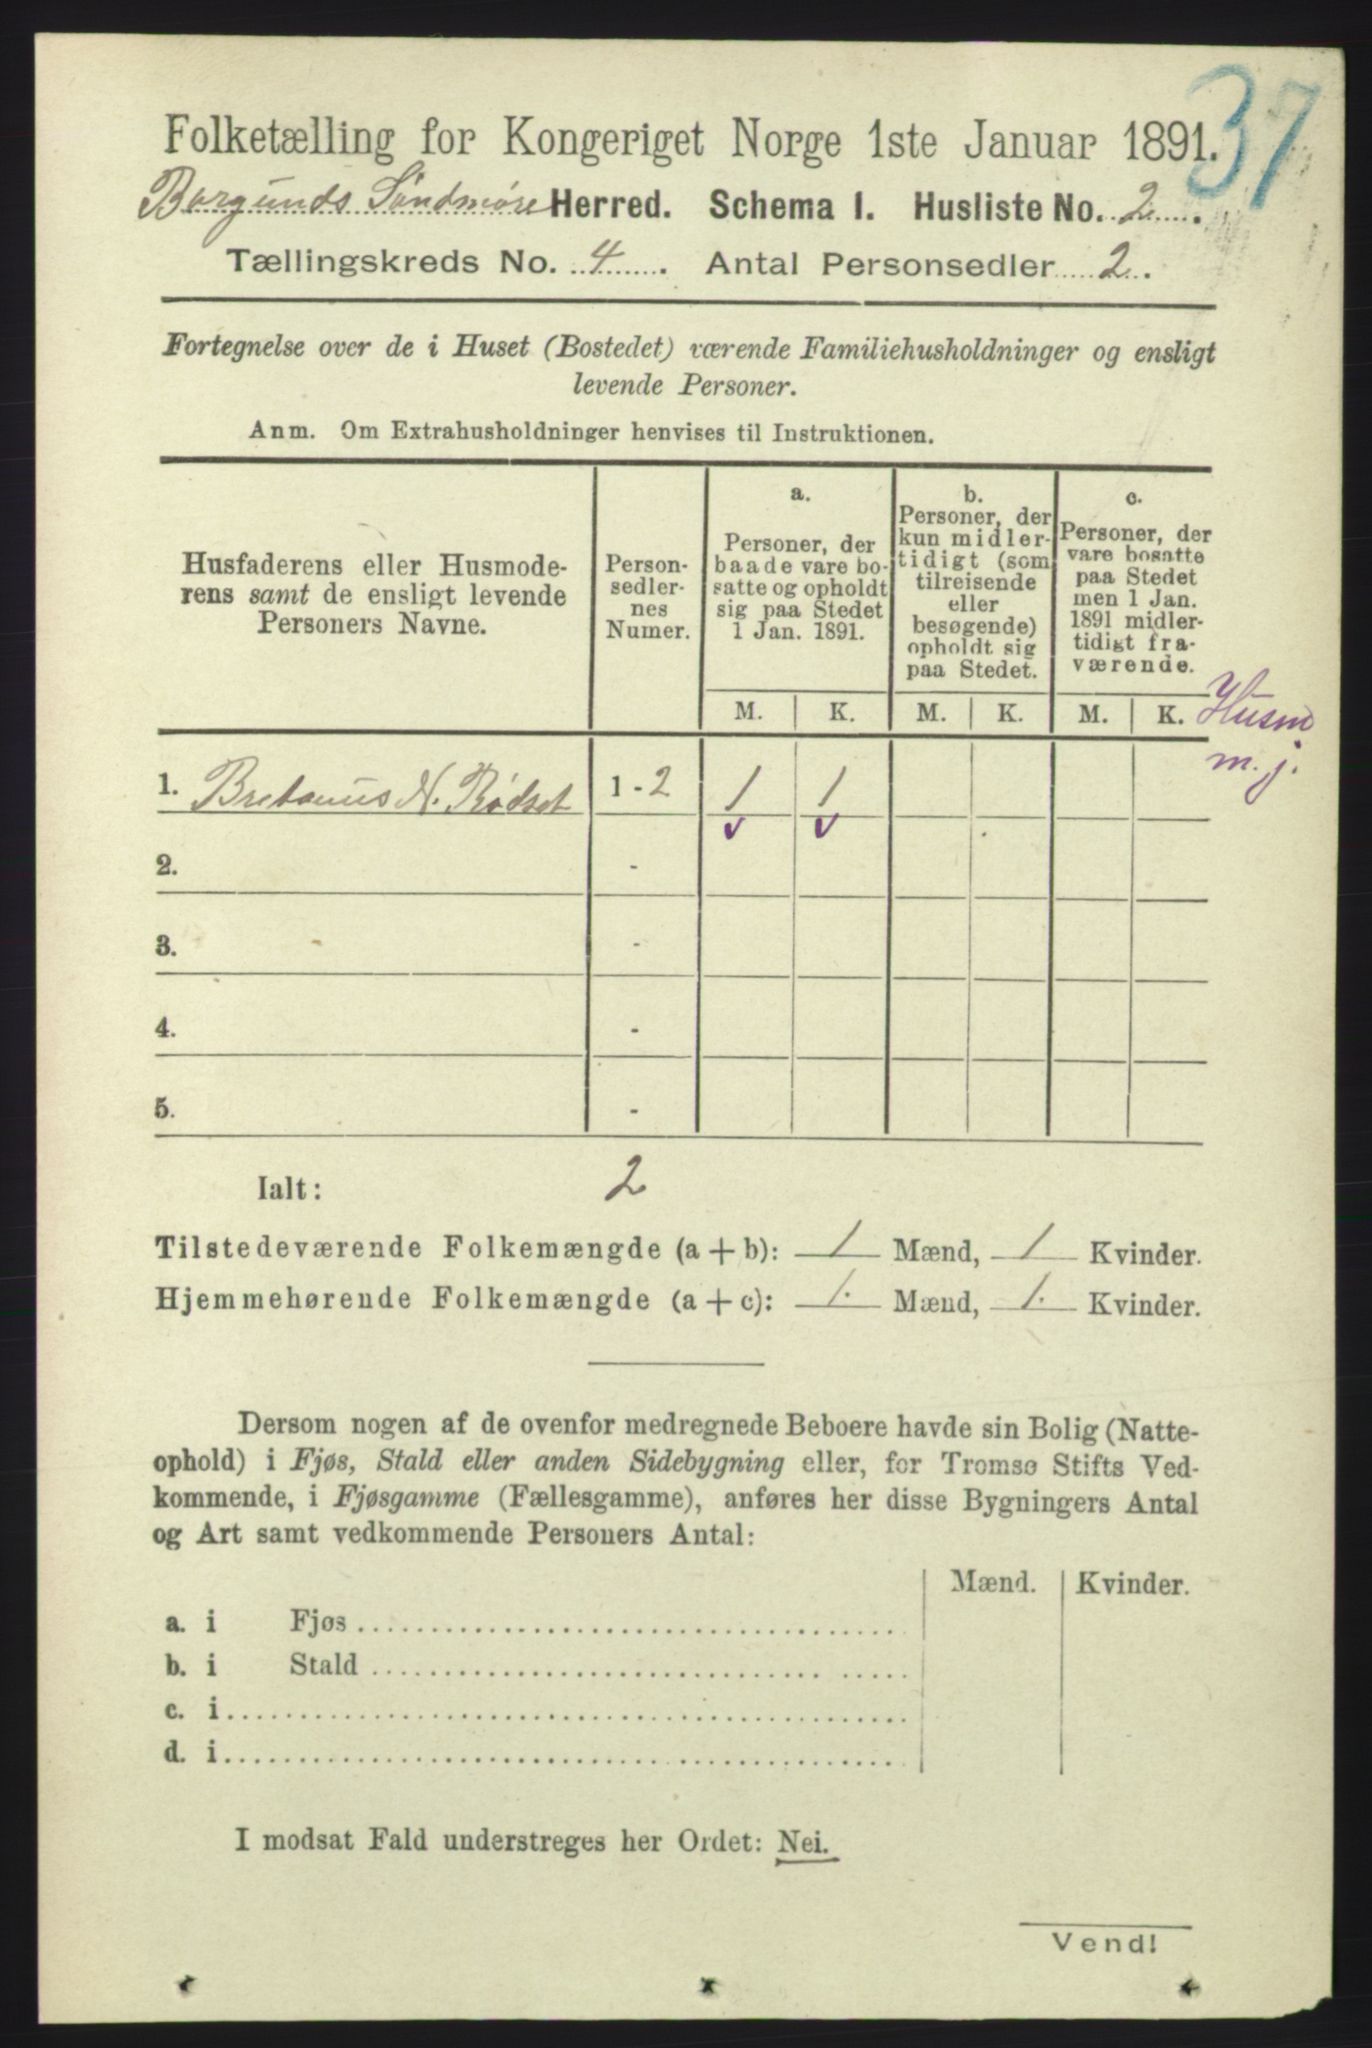 37
Folketælling for Kongeriget Norge 1ste Januar 1891.
Borgunds Söndmøre Herred. Schema I. Husliste No. 2.
Tællingskreds No. 4. Antal Personsedler 2.
Fortegnelse over de i Huset (Bostedet) værende Familiehusholdninger og ensligt
levende Personer.
Anm. Om Extrahusholdninger henvises til Instruktionen.
Husfaderens eller Husmode-
rens samt de ensligt levende
Personers Navne.
Person-
sedler-
nes
Numer.
a.
Personer, der
baade vare bo-
satte og opholdt
sig paa Stedet
1 Jan. 1891.
b.
Personer, der
kun midler-
tidigt (som
tilreisende
eller
besøgende)
opholdt sig
paa Stedet.
c.
Personer, der
vare bosatte
paa Stedet
men 1 Jan.
1891 midler-
tidigt fra-
værende.
M. K. M. K. M. K.
Husm
m. j.
1. Bretanus N. Rødset 1 - 2 1 1
2. -
3. -
4. -
5. -
Ialt: 2
Tilstedeværende Folkemængde (a + b): 1 Mænd, 1 Kvinder.
Hjemmehørende Folkemængde (a + c): 1. Mænd, 1. Kvinder.
Dersom nogen af de ovenfor medregnede Beboere havde sin Bolig (Natte-
ophold) i Fjøs, Stald eller anden Sidebygning eller, for Tromsø Stifts Ved-
kommende, i Fjøsgamme (Fællesgamme), anføres her disse Bygningers Antal
og Art samt vedkommende Personers Antal:
Mænd. Kvinder.
a. i Fjøs
b. i Stald
c. i
d. i
I modsat Fald understreges her Ordet: Nei.
Vend!